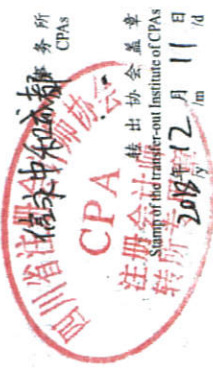 信永中和成都 事务所
CPAs
四川省注册会计师协会
CPA
注册会计师
转所专用章
转出协会盖章
Stamp of the transfer-out Institute of CPAs
2018年12月11日
/y /m /d